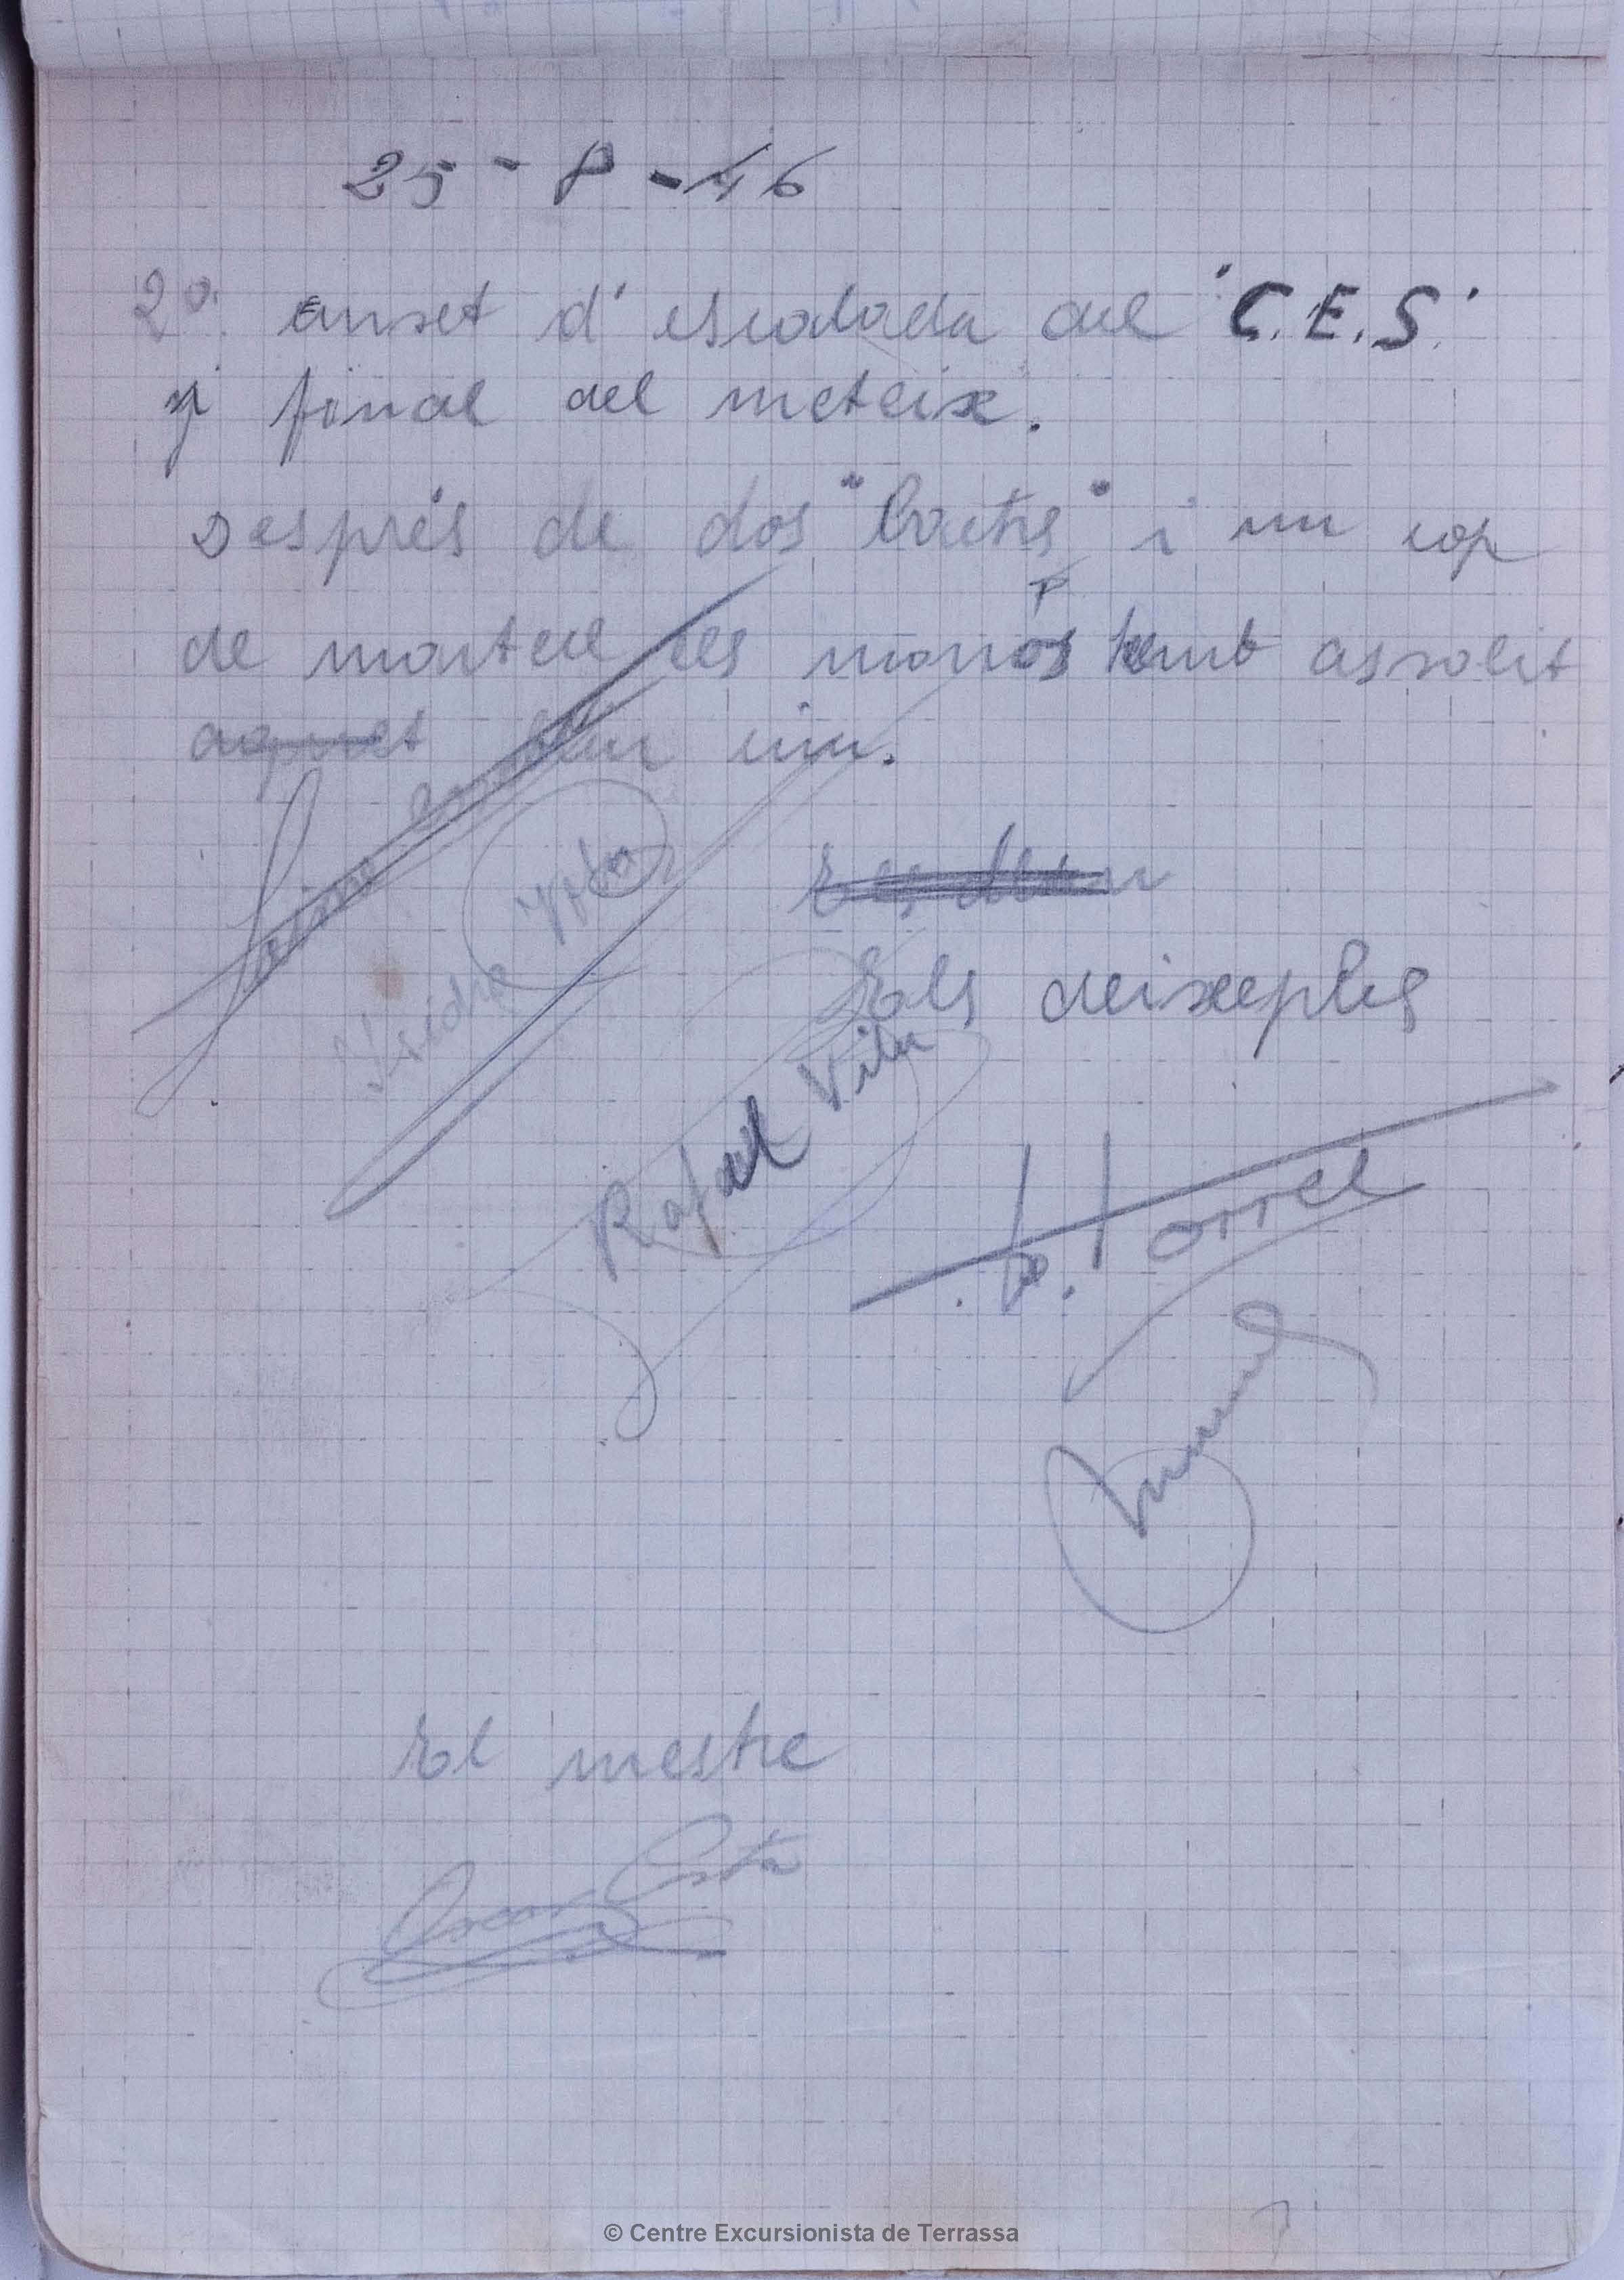 25 - 8 - 46
2º: curset d'escalada del "C.E.S."
y final del meteix.
Després de dos "bactes" i un cop
de martell als manos hemb assolit
aquet bell cim.
Jaime
Isidre
Els deixeples
Rafael Vila
P. Torrel
El mestre
Oscar Costa
© Centre Excursionista de Terrassa